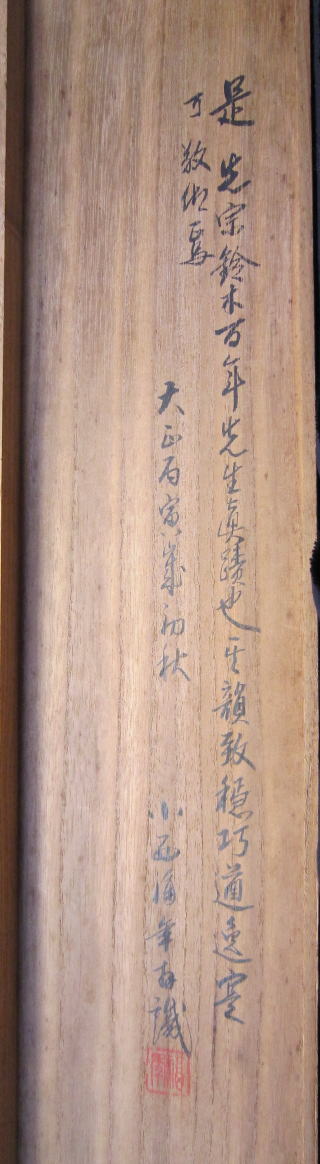 是先宗鈴木百年先生真蹟也其韻致穏巧遒逸寔
可敬仰焉
大正丙寅歳初秋
小西福年拝識
福年